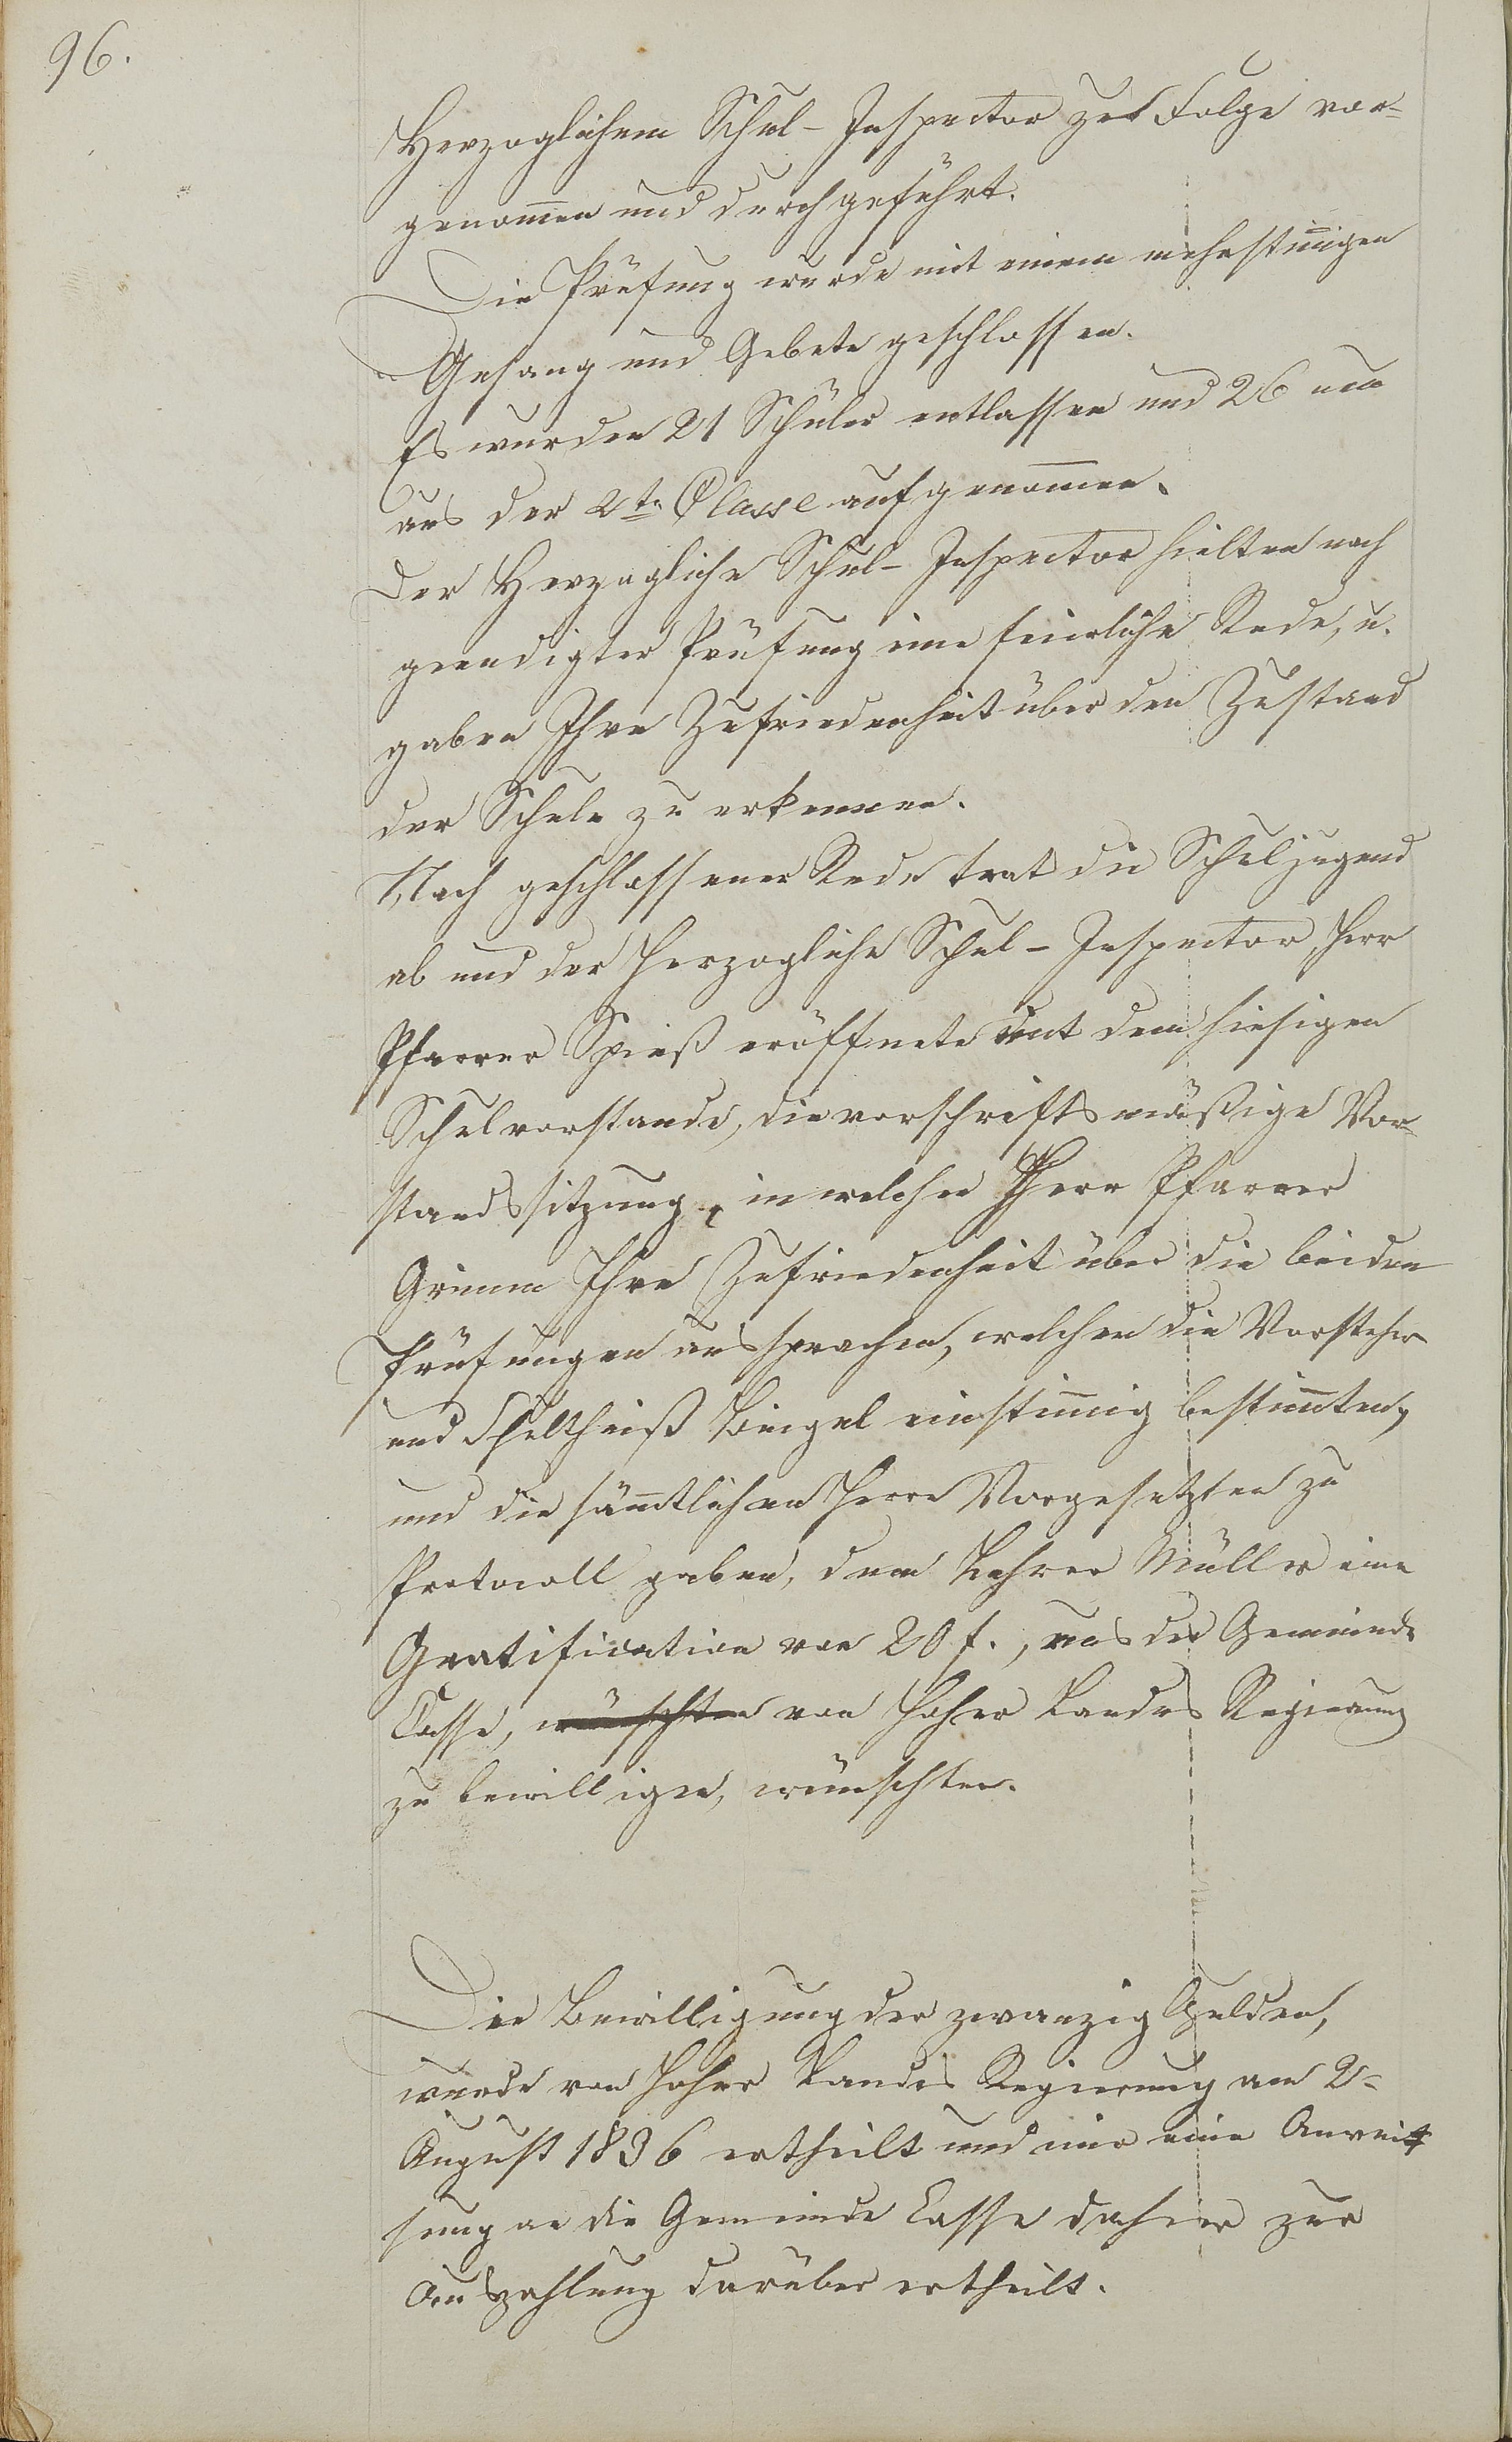 96.
Herzoglichem Schul-Inspector zu Folge vor-
genom̅en und durchgeführt.
Die Prüfung wurde mit einem mehrstim̅igen
Gesang und Gebete geschlossen.
Es wurden 21 Schüler entlassen und 26 neu
aus der 2te Classe aufgenom̅en.
Der Herzogliche Schul-Inspector hielten nach
geendigter Prüfung eine feierliche Rede, u.
gaben Ihre Zufriedenheit über den Zustand
der Schule zu erkennen.
Nach geschlossener Rede trat die Schuljugend
ab und der Herzogliche Schul-Inspector, Herr
Pfarrer Spieß eröffnete mit dem hiesigen
Schulvorstande, die vorschriftsmäßige Vor-
standssitzung, in welcher Herr Pfarrer
Grimm Ihre Zufriedenheit über die beiden
Prüfungen aussprachen, welchen die Vorsteher
und Schultheiß Bingel einstim̅ig bestim̅ten,
und die säm̅tlichen Herrn Vorgesetzten zu
Protocoll gaben, dem Lehrer Müller eine
Gratification von 20 f., aus der Gemeinde
Casse, wünschten von Hoher Landes Regierung
zu bewilligen, wünschten.
Die Bewilligung der zwanzig Gulden,
wurde von Hoher Landes Regierung am 2=
August 1836 ertheilt und mir eine Anwei-
sung an die Gemeinde Casse dahier zur
Auszahlung darüber ertheilt.